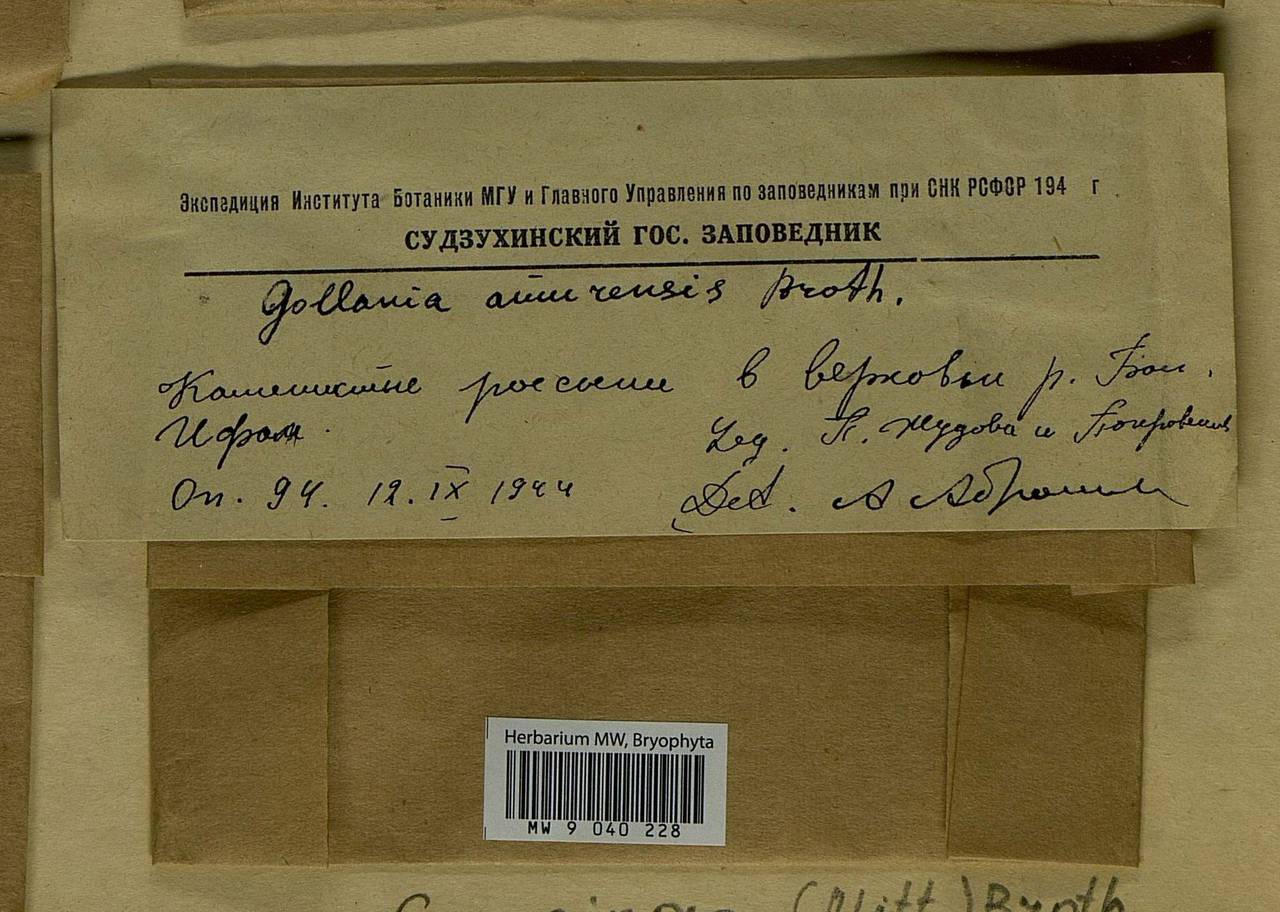 Экспедиция Института Ботаники МГУ и Главного Управления по заповедникам при СНК РСФСР 194 г
СУДЗУХИНСКИЙ ГОС. ЗАПОВЕДНИК
Gollania amurensis Broth.
Каменистые россыпи в верховьи р.
Leg. П. Жудова и
Оп. 94. 12. IX 1944
Det. А Абрамов
Herbarium MW, Bryophyta
MW 9 040 228
(Mitt.) Broth